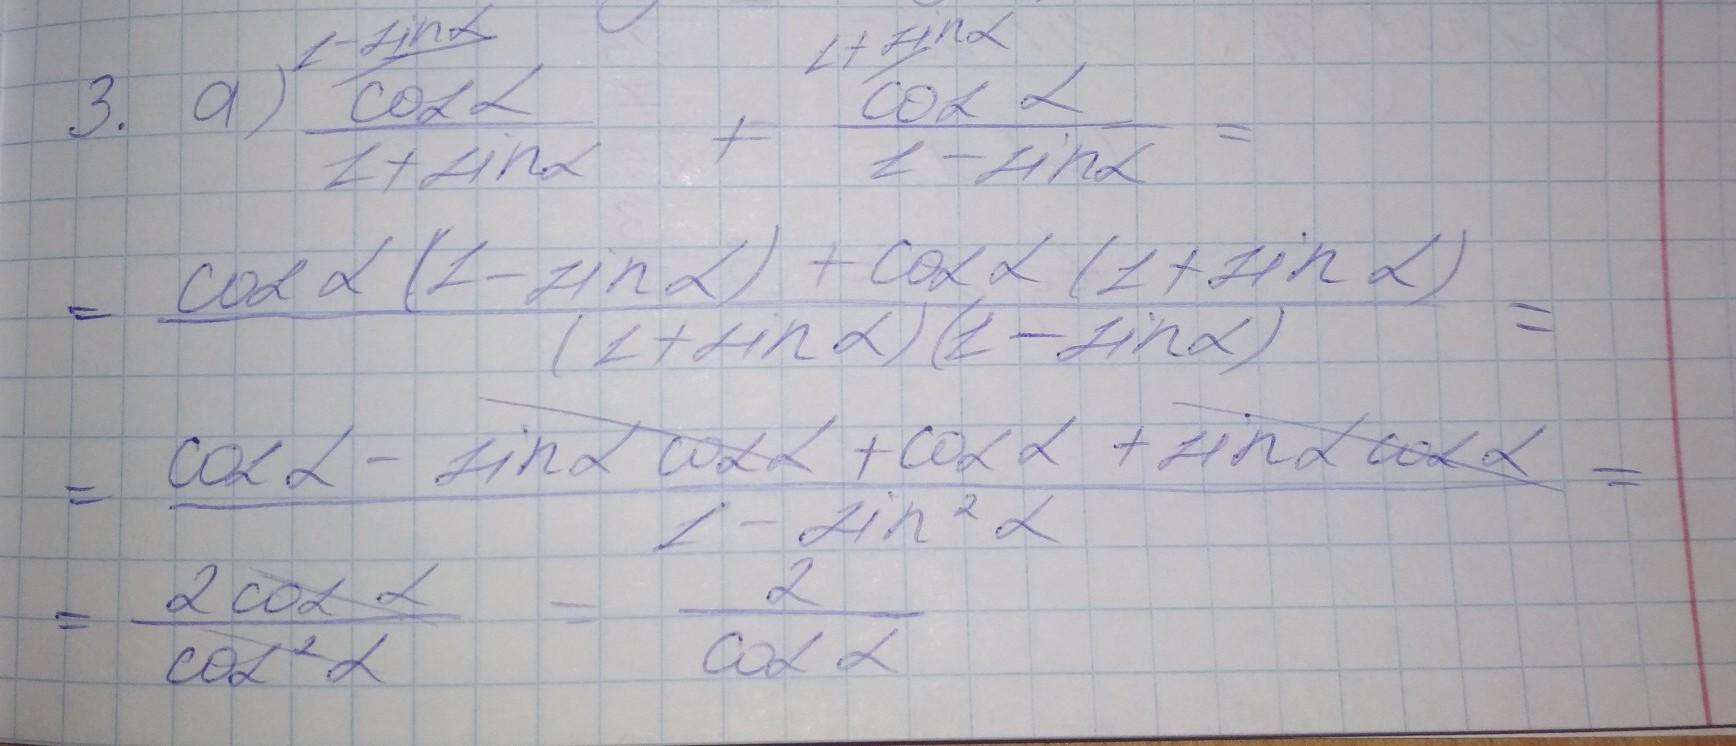 1-sinα 1+sinα
3. а) cosα/1+sinα + cos α/1-sinα =
= cos α (1-sin α) + cos α (1+sin α)/(1+sin α)(1-sinα) =
= cos α - sinα cosα + cos α + sinα cos α/1-sin² α =
= 2 cos α/cos² α = 2/cos α